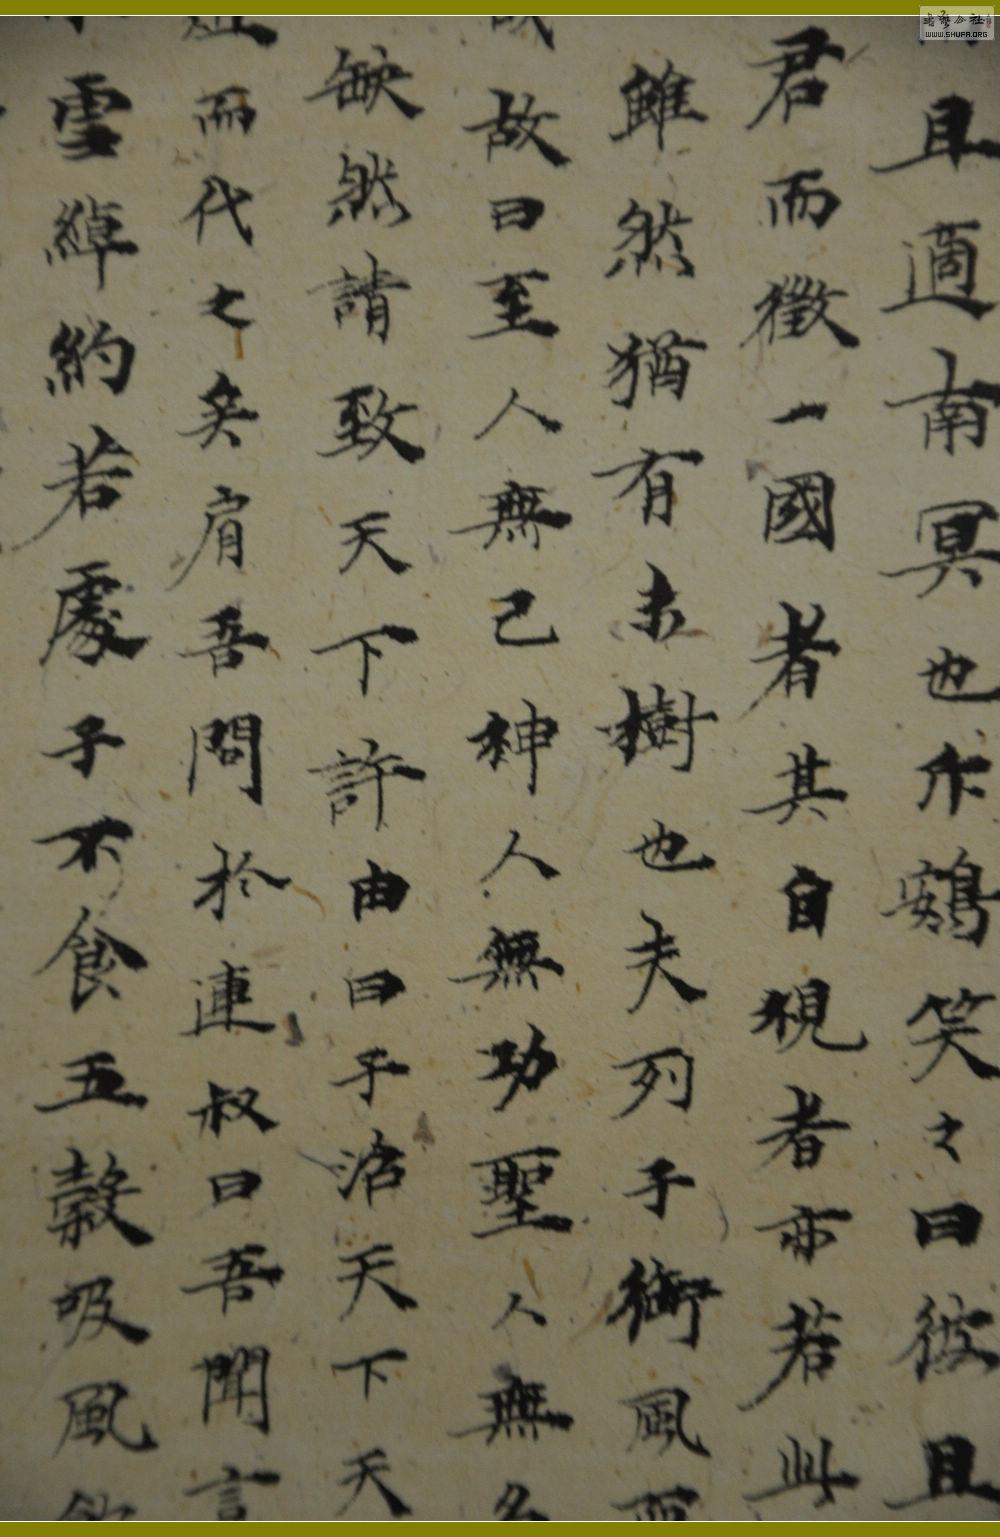 且適南冥也斥鴳笑之曰彼且
君而徵一國者其自視者亦若此
雖然猶有未樹也夫列子御風而
故曰至人無己神人無功聖人無名
缺然請致天下許由曰子治天下天
而代之矣肩吾問於連叔曰吾聞言
雪綽約若處子不食五穀吸風飲
書藝公社
WWW.SHUFA.ORG